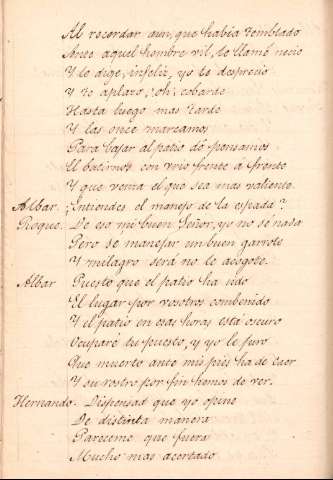 Al recordar aun, que habia temblado
Ante aquel hombre vil, le llamé necio
Y le dige, infeliz, yo te desprecio
Y te aplazo, ¡oh! cobarde
Hasta luego mas tarde
Y las once marcamos
Para bajar al patio dó pensamos
El batirnos con brio frente á frente
Y que venza el que sea mas valiente.
Albar. ¿Entiendes el manejo de la espada?
Roque. De eso mi buen Señor, yo no sé nada
Pero sé manejar un buen garrote
Y milagro será no le acogote.
Albar Puesto que el patio ha sido
El lugar por vosotros combenido
Y el patio en esas horas está oscuro
Ocuparé tu puesto, y yo le juro
Que muerto ante mis piés ha de caer
Y su rostro por fin hemos de ver.
Hernando. Dispensad que yo opine
De distinta manera
Pareceme que fuera
Mucho mas acertado